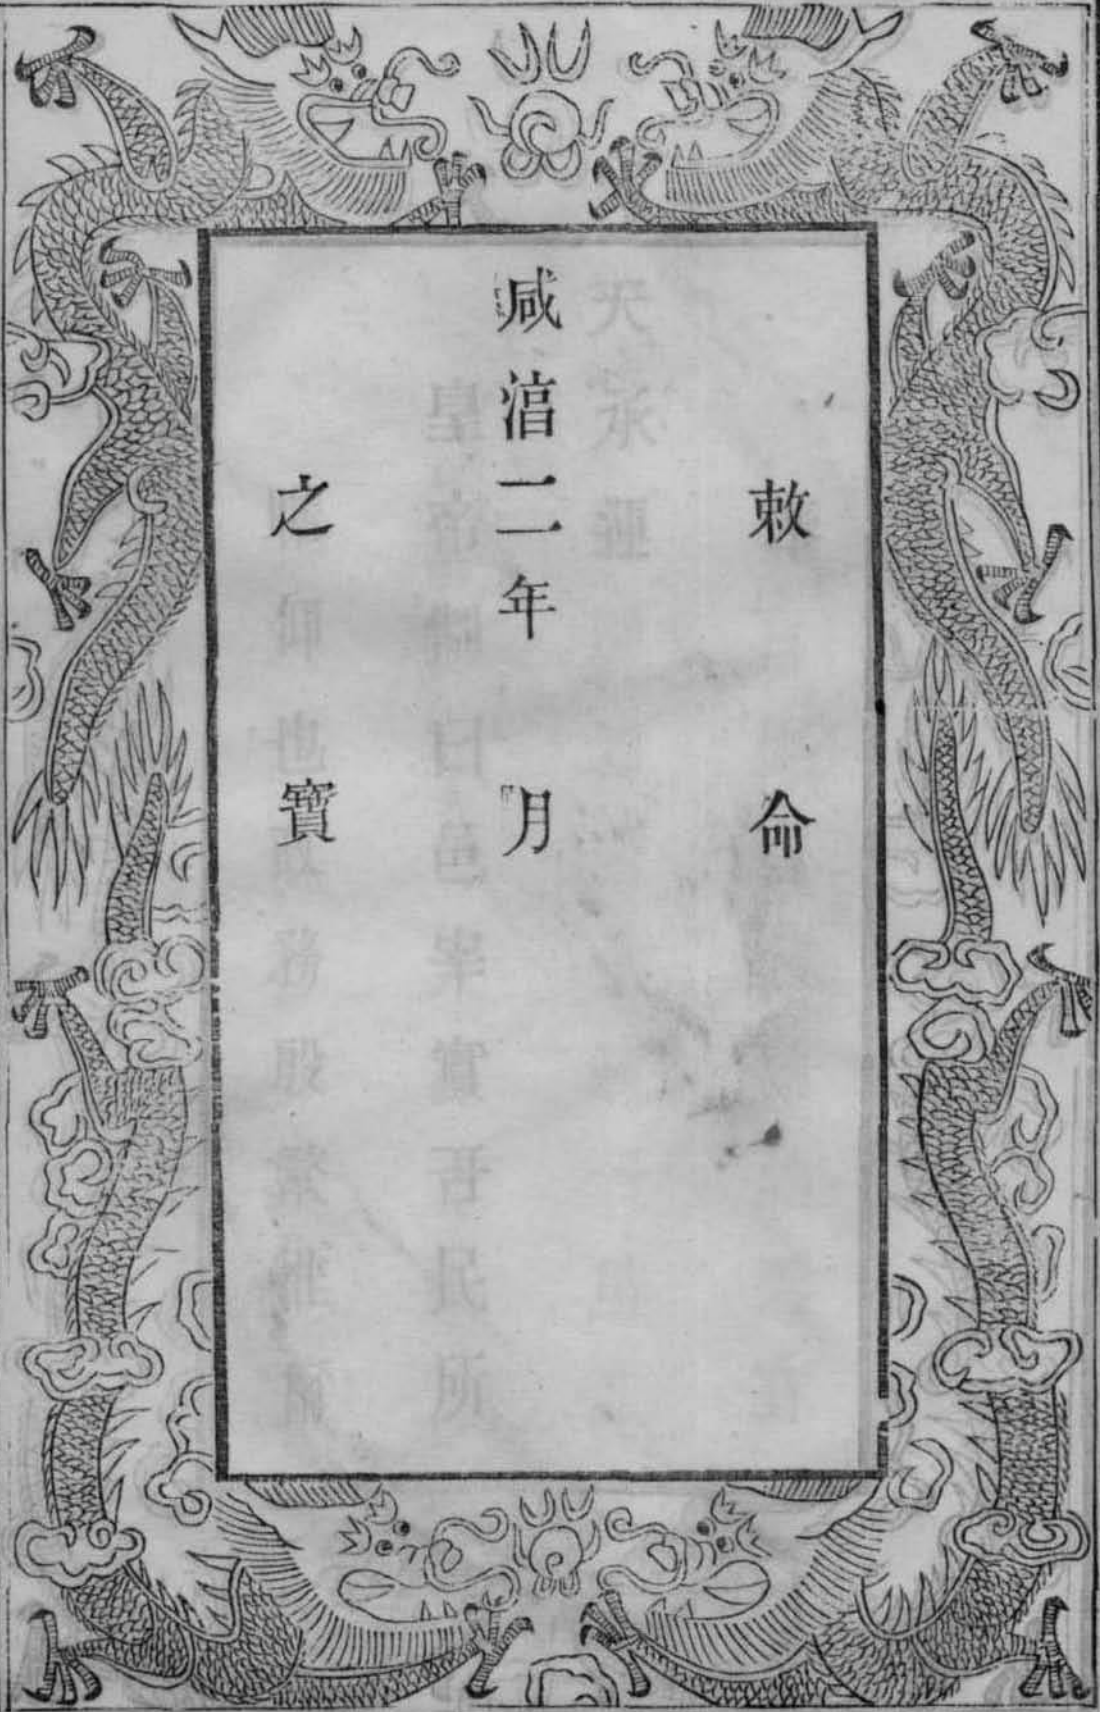 敕命
咸湻二年 月
之寶